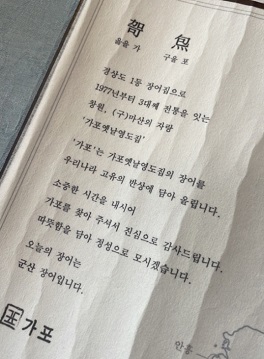 哿 炰
옳을 가 구울 포
경상도 1등 장어집으로
1977년부터 3대째 전통을 잇는
창원, (구)마산의 자랑
'가포옛날영도집'
'가포'는 가포옛날영도집의 장어를
우리나라 고유의 반상에 담아 올립니다.
소중한 시간을 내시어
가포를 찾아 주셔서 진심으로 감사드립니다.
따뜻함을 담아 정성으로 모시겠습니다.
오늘의 장어는
군산 장어입니다.
가포
안흥